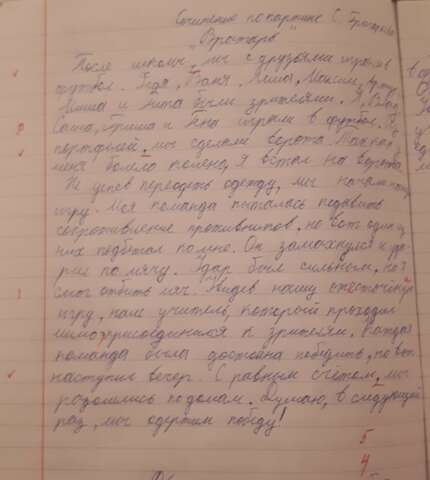 Сочинение по картине С. Григорьева
"Вратарь"
После школы, мы с друзьями играли в
футбол. Петя, Ваня, Миша, Максим,
Миша и были зрителями. Я,
Саша, Гриша и играли в футбол. Из
портфелей, мы сделали ворота.
меня болело колено, я встал на ворота.
Не успев переодеть одежду, мы начали
игру. Моя команда пыталась подавить
сопротивление противников, но вот один из
них подбежал по мне. Он замахнулся и уда-
рил по мячу. Удар был сильным, но я
смог отбить мяч. Увидев нашу ожесточёную
игру, наш учитель, который проходил
мимо присоединился к зрителям. Каждая
команда была достойна победить, но вот
наступил вечер. С равным счётом, мы
розошлись по домам. Думаю, в следующий
раз, мы одержим победу!
5
4